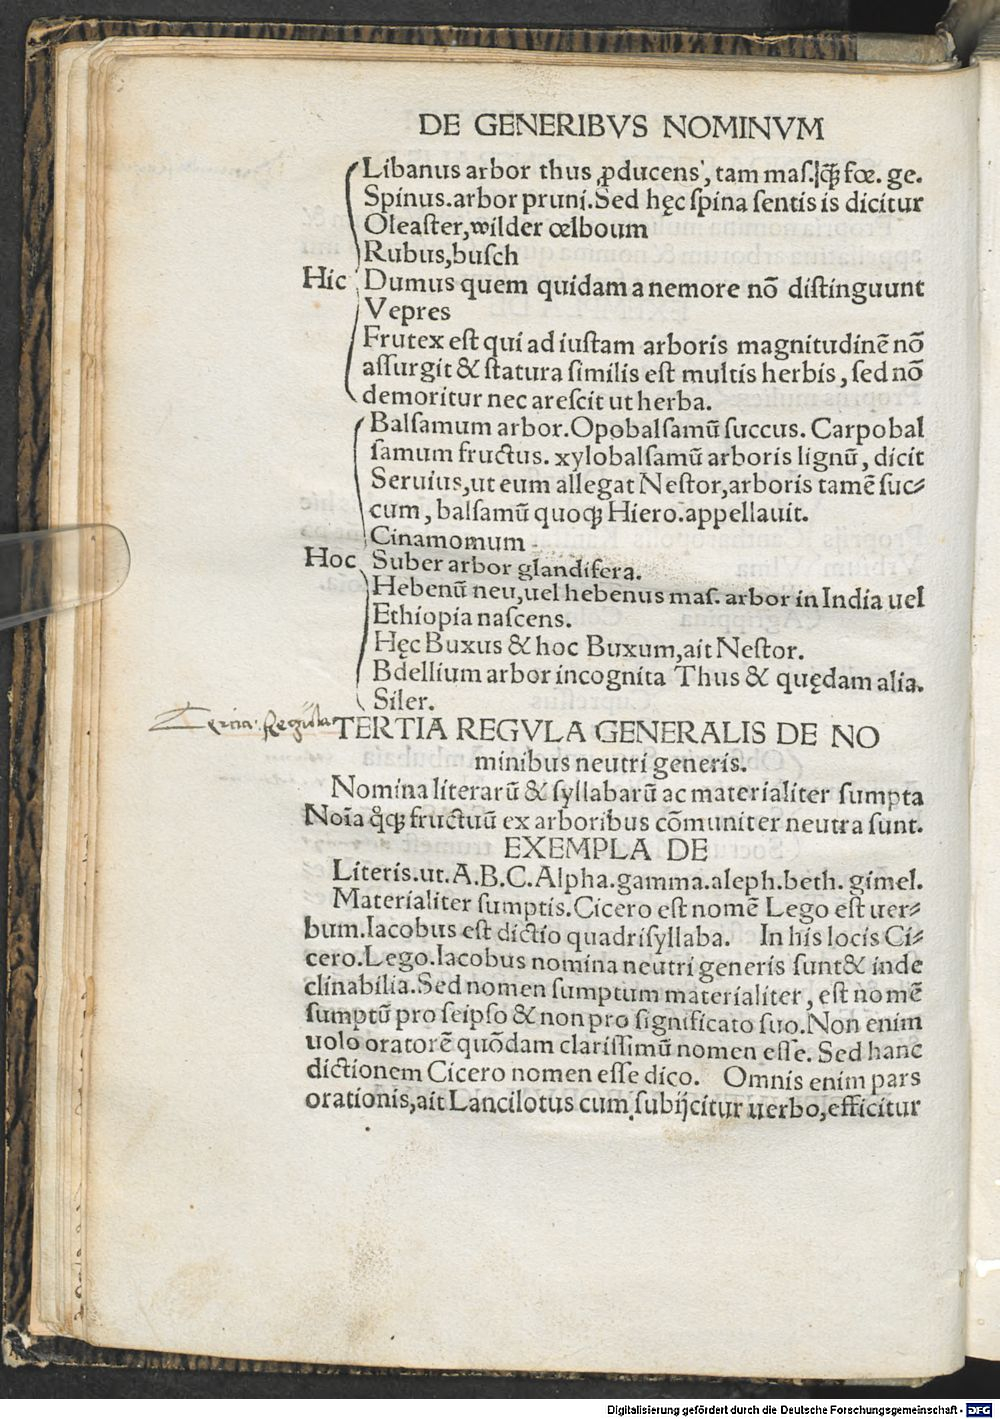 DE GENERIBVS NOMINVM
Libanus arbor thus ꝓducens, tam maſ.ꝗ̃ꝫ fœ. ge.
Spinus.arbor pruni.Sed hęc ſpina ſentis is dicitur
Oleaſter,wilder œlboum
Rubus,buſch
Hic Dumus quem quidam a nemore nō diſtinguunt
Vepres
Frutex eſt qui ad iuſtam arboris magnitudinē nō
aſſurgit & ſtatura ſimilis eſt multis herbis, ſed nō
demoritur nec areſcit ut herba.
Balſamum arbor.Opobalſamū ſuccus. Carpobal
ſamum fructus. xylobalſamū arboris lignū, dicit
Seruius,ut eum allegat Neſtor,arboris tamē ſuc⸗
cum, balſamū quoqꝫ Hiero.appellauit.
Cinamomum
Hoc Suber arbor glandifera.
Hebenū neu,uel hebenus maſ. arbor in India uel
Ethiopia naſcens.
Hęc Buxus & hoc Buxum,ait Neſtor.
Bdellium arbor incognita Thus & quędam alia.
Siler.
Tercia Regula
TERTIA REGVLA GENERALIS DE NO
minibus neutri generis.
Nomina literarū & ſyllabarū ac materialiter ſumpta
Noīa q̊qꝫ fructuū ex arboribus cōmuniter neutra sunt.
EXEMPLA DE
Literis.ut.A.B.C.Alpha.gamma.aleph.beth. gimel.
Materialiter ſumptis.Cicero eſt nomē Lego eſt uer⸗
bum.Iacobus eſt dictio quadriſyllaba. In his locis Ci⸗
cero.Lego.Iacobus nomina neutri generis ſunt& inde
clinabilia.Sed nomen ſumptum materialiter, eſt nomē
ſumptū pro ſeipſo & non pro ſignificato ſuo.Non enim
uolo oratorē quōdam clariſſimū nomen eſſe. Sed hanc
dictionem Cicero nomen eſſe dico. Omnis enim pars
orationis,ait Lancilotus cum ſubijcitur uerbo,efficitur
Digitalisierung gefördert durch die Deutsche Forschungsgemeinschaft - DFG